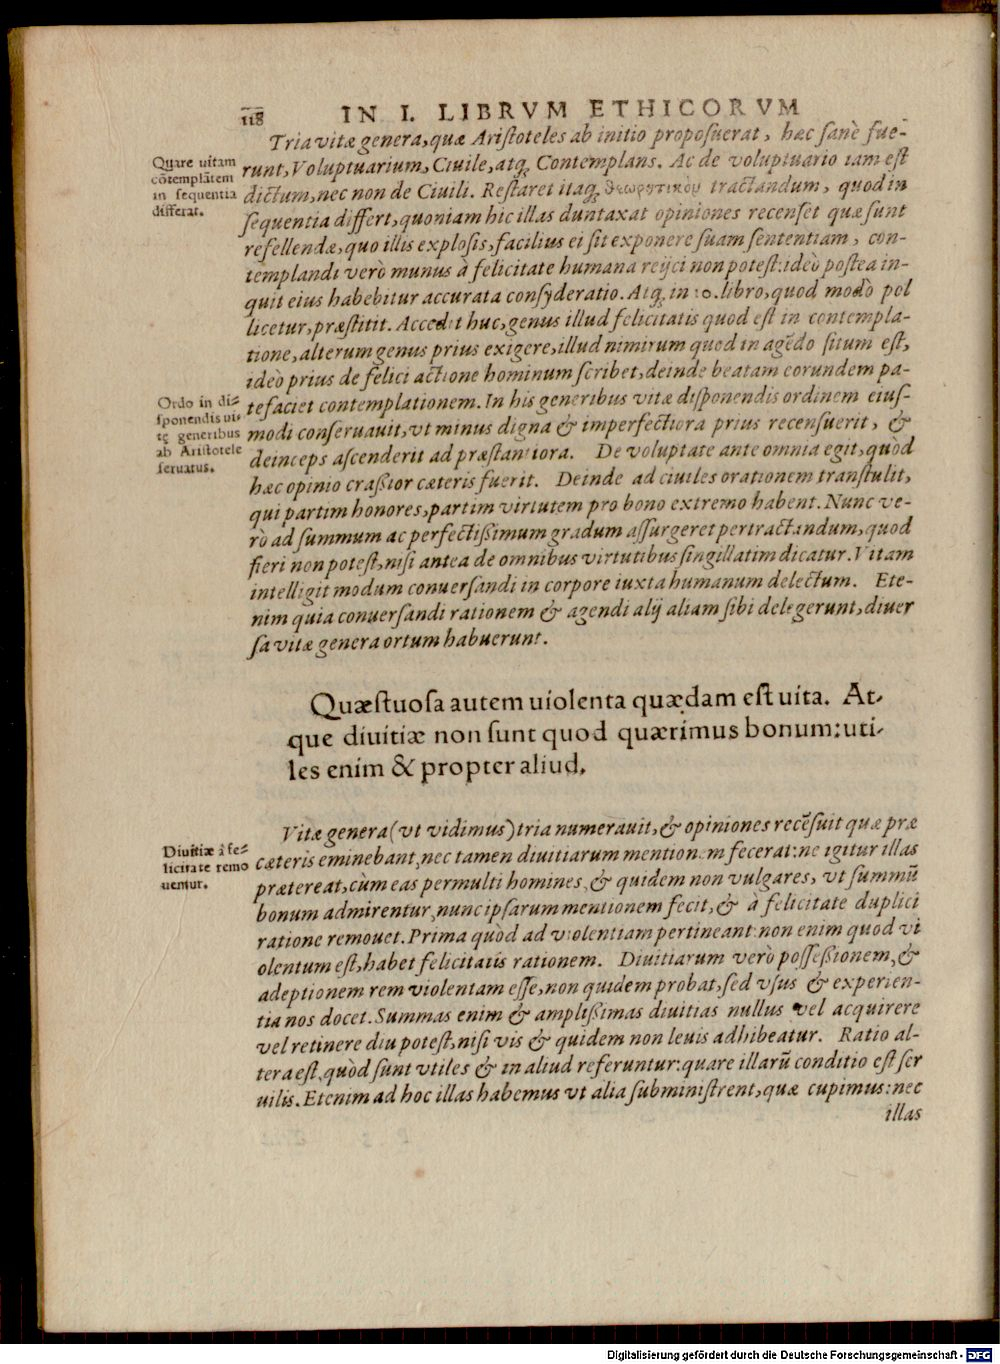 118 IN I. LIBRVM ETHICORVM
Tria vitæ genera, quæ Aristoteles ab initio proposuerat, hæc sanè fue-
runt, Voluptuarium, Ciuile, atq; Contemplans. Ac de voluptuario iam est
dictum, nec non de Ciuili. Restaret itaq; θεωρητικὸν tractandum, quod in
sequentia differt, quoniam hic illas duntaxat opiniones recenset quæ sunt
refellendæ, quo illis explosis, facilius ei sit exponere suam sententiam, con-
templandi verò munus à felicitate humana reijci non potest: ideò postea in-
quit eius habebitur accurata consyderatio. Atq; in 10. libro, quod modò pol
licetur, præstitit. Accedit huc, genus illud felicitatis quod est in contempla-
tione, alterum genus prius exigere, illud nimirum quod in agẽdo situm est,
ideò prius de felici actione hominum scribet, deinde beatam eorundem pa-
tefaciet contemplationem. In his generibus vitæ disponendis ordinem eius-
modi conseruauit, vt minus digna & imperfectiora prius recensuerit, &
deinceps ascenderit ad præstantiora. De voluptate ante omnia egit, quòd
hæc opinio craßior cæteris fuerit. Deinde ad ciuiles orationem transtulit,
qui partim honores, partim virtutem pro bono extremo habent. Nunc ve-
rò ad summum ac perfectißimum gradum assurgeret pertractandum, quod
fieri non potest, nisi antea de omnibus virtutibus singillatim dicatur. Vitam
intelligit modum conuersandi in corpore iuxta humanum delectum. Ete-
nim quia conuersandi rationem & agendi alij aliam sibi delegerunt, diuer
sa vitæ genera ortum habuerunt.
Quare uitam
cõtemplãtem
in sequentia
differat.
Ordo in di-
sponendis ui-
tę generibus
ab Aristotele
seruatus.
Quæstuosa autem uiolenta quædam est uita. At-
que diuitiæ non sunt quod quærimus bonum: uti-
les enim & propter aliud.
Vitæ genera (vt vidimus) tria numerauit, & opiniones recẽsuit quæ præ
cæteris eminebant, nec tamen diuitiarum mentionem fecerat: ne igitur illas
prætereat, cùm eas permulti homines, & quidem non vulgares, vt summũ
bonum admirentur, nunc ipsarum mentionem fecit, & à felicitate duplici
ratione remouet. Prima quòd ad violentiam pertineant: non enim quod vi
olentum est, habet felicitatis rationem. Diuitiarum verò possessionem, &
adeptionem rem violentam esse, non quidem probat, sed vsus & experien-
tia nos docet. Summas enim & amplißimas diuitias nullus vel acquirere
vel retinere diu potest, nisi vis & quidem non leuis adhibeatur. Ratio al-
tera est, quòd sunt vtiles & in aliud referuntur: quare illarũ conditio est ser
uilis. Etenim ad hoc illas habemus vt alia subministrent, quæ cupimus: nec
illas
Diuitiæ à fe-
licitate remo
uentur.
Digitalisierung gefördert durch die Deutsche Forschungsgemeinschaft - DFG